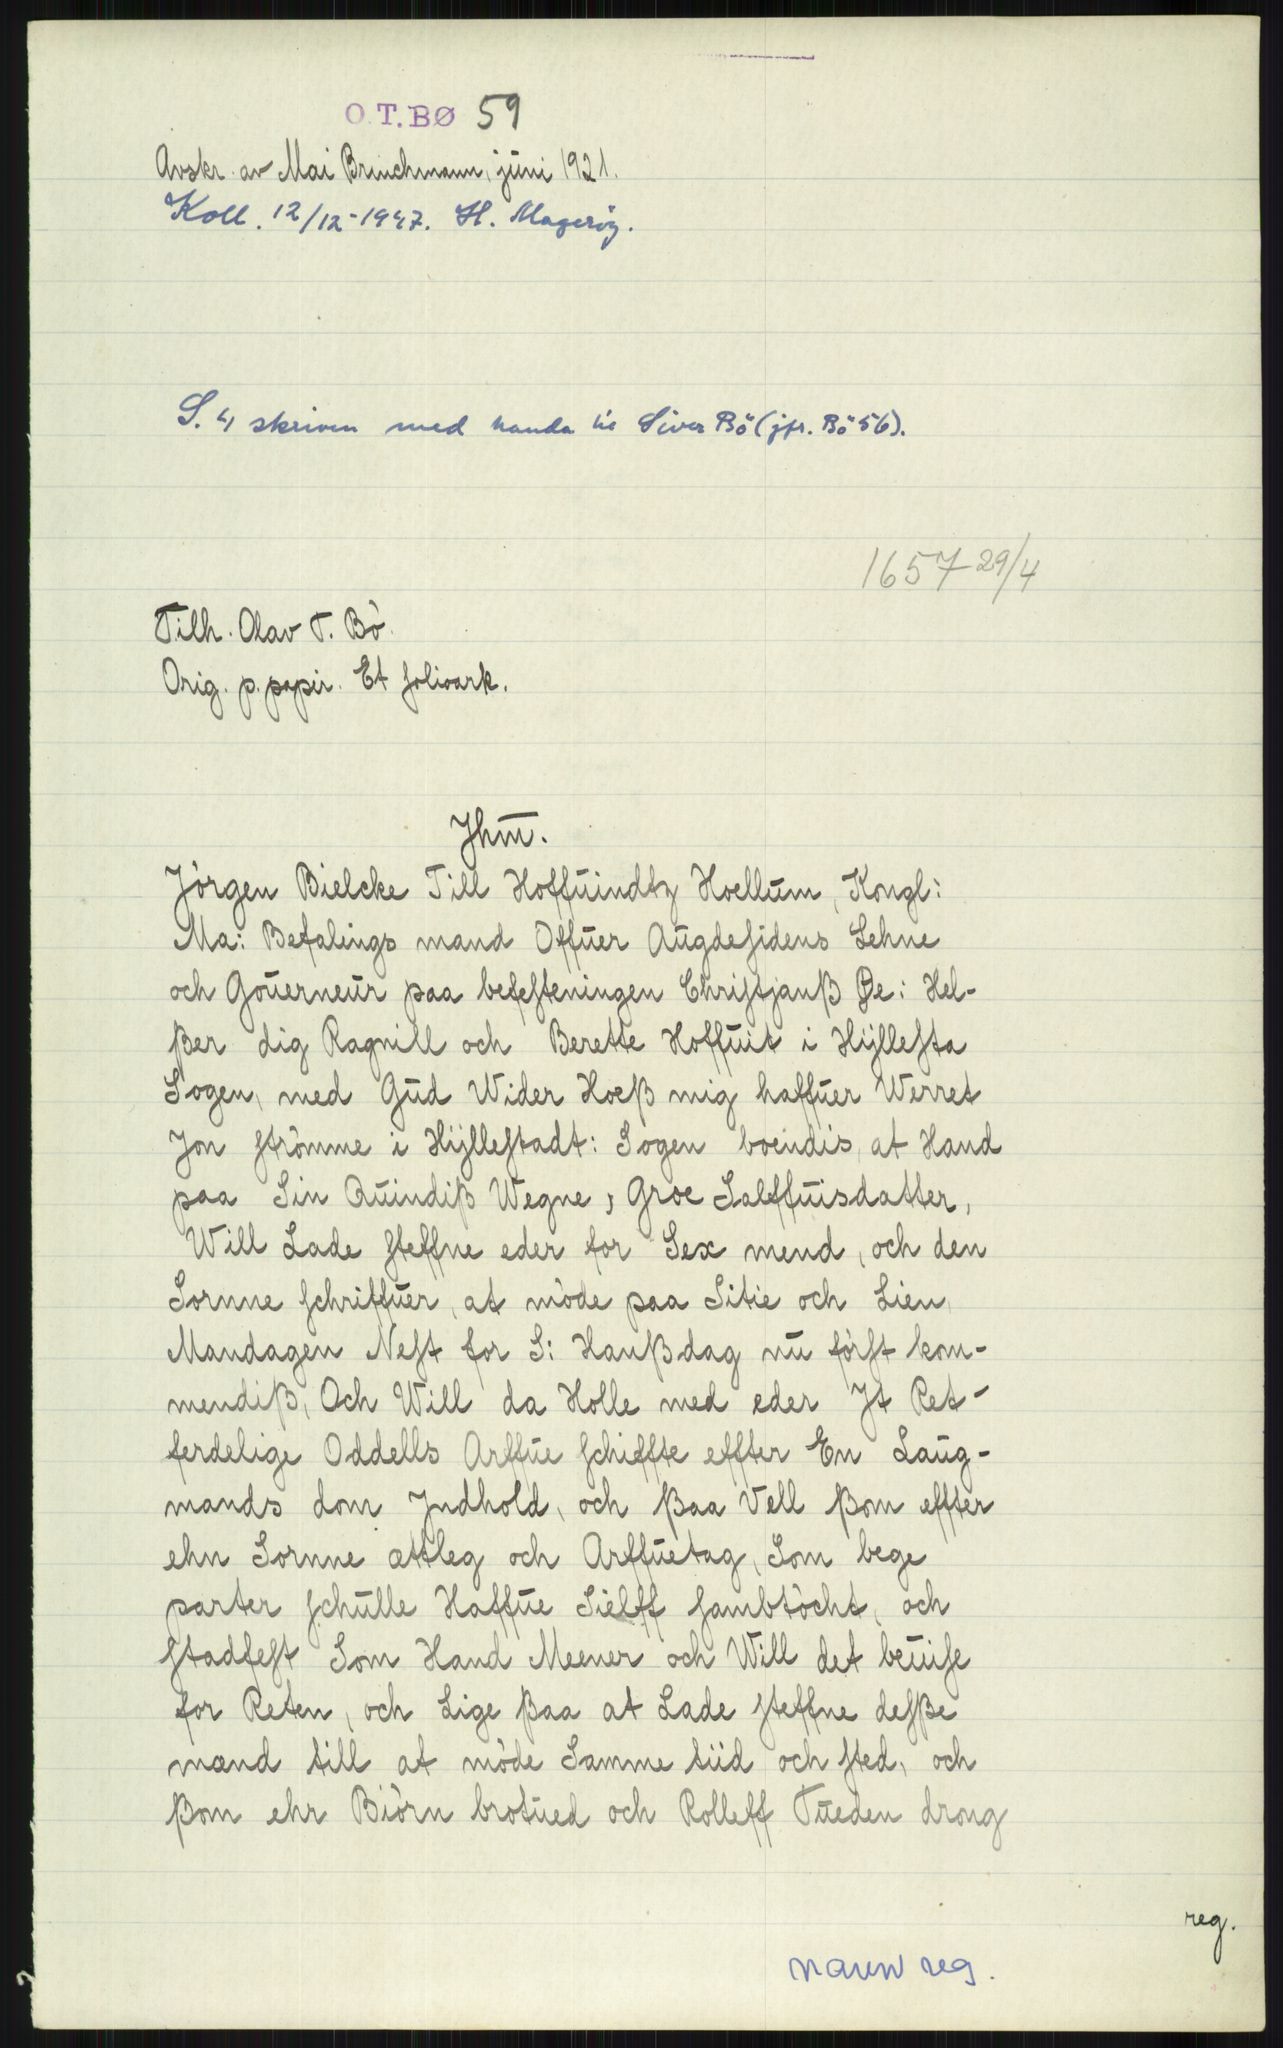 O.T.BØ 59
Avskr. av Mai Brinchmann, juni 1921.
Koll. 12/12-1947. H. Magerøy.
S. 4 skriven med handa til Siver Bö (jfr. Bö 56).
1657 29/4
Tilh. Olav T. Bö.
Orig. p. papir. Et folioark.
Jhm̅.
Jörgen Bielcke Till Hoffuindtz Hoellum, Kongl:
Ma: Befalings mand Offuer Augdesidens Lehne
och Gouerneur paa befesteningen Christjanß Øe: Hel-
ßer dig Ragnill och Berette Hoffuit i Hÿllesta
Sogen, med Gud Wider Hoeß mig haffuer Werret
Jon strömme i Hÿllestadt: Sogen boendis, at Hand
paa Sin Quindiß Wegne, Groe Salffuisdatter,
Will Lade steffne eder for Sex mend, och den
Sornne schriffuer, at möde paa Sitie och Lien,
Mandagen Nest for S: Hanßdag nu först kom-
mendiß, Och Will da Holle med eder Jt Ret-
ferdelige Oddells Arffue schiffte effter En Laug-
mands dom Jndhold, och ßaa Vell ßom effter
ehn Sornne ættleg och Arffuetag, Som bege
parter schulle Haffue Sielff sambtöcht, och
stadfest Som Hand Meener och Will det beuise
for Reten, och Lige ßaa at Lade steffne desße
mænd till at möde Samme tiid och sted, och
ßom ehr Biörn brotued och Rolleff Tueden drong
reg.
navn reg.